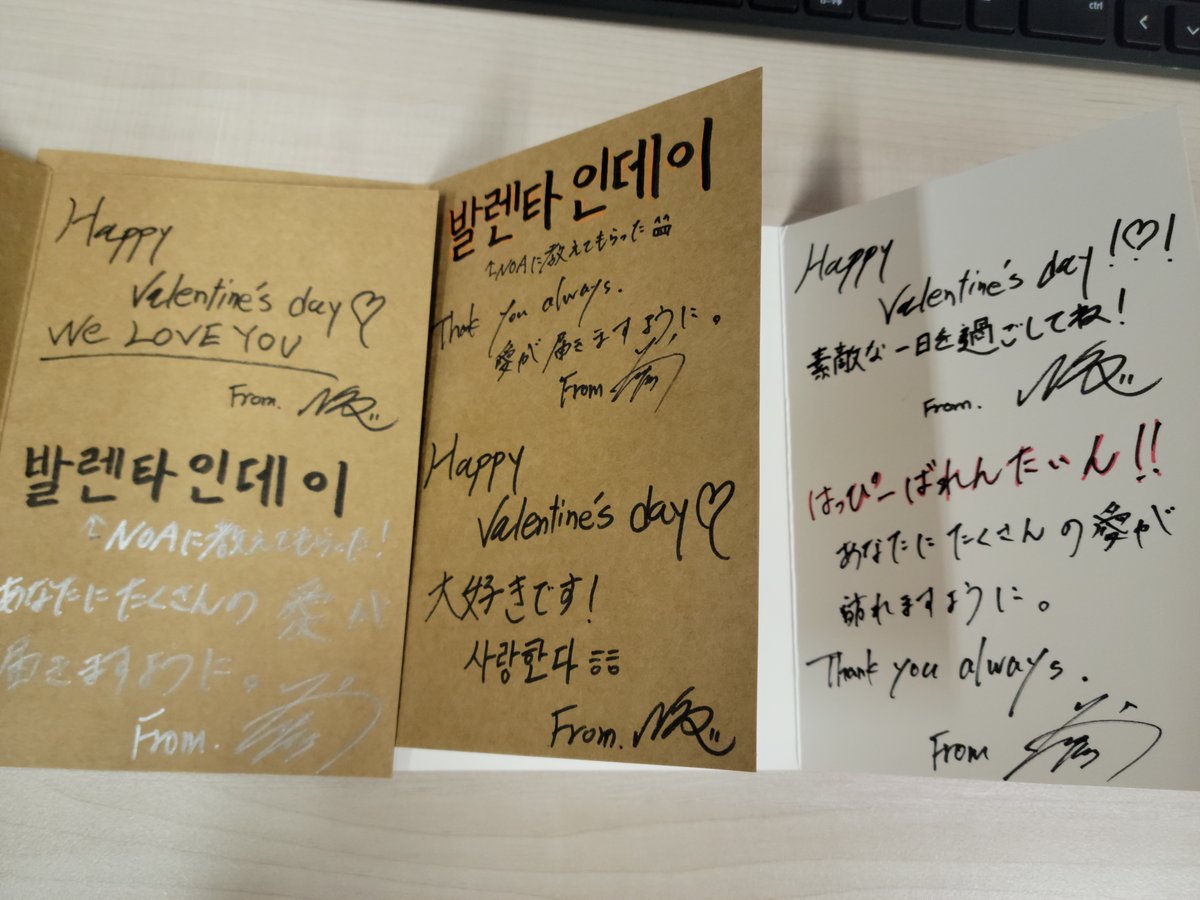 Happy
Valentine's day♡
We LOVE YOU
From.
발렌타인데이
↑NOAに教えてもらった!
あなたにたくさんの愛が
届きますように。
From.
발렌타인데이
↑NOAに教えてもらった
Thank you always.
愛が届きますように。
From
Happy
Valentine's day♡
大好きです!
사랑한다
From.
Happy
Valentine's day!♡!
素敵な一日を過ごしてね!
From.
はっぴーばれんたいん!!
あなたにたくさんの愛が
訪れますように。
Thank you always.
From
ctrl